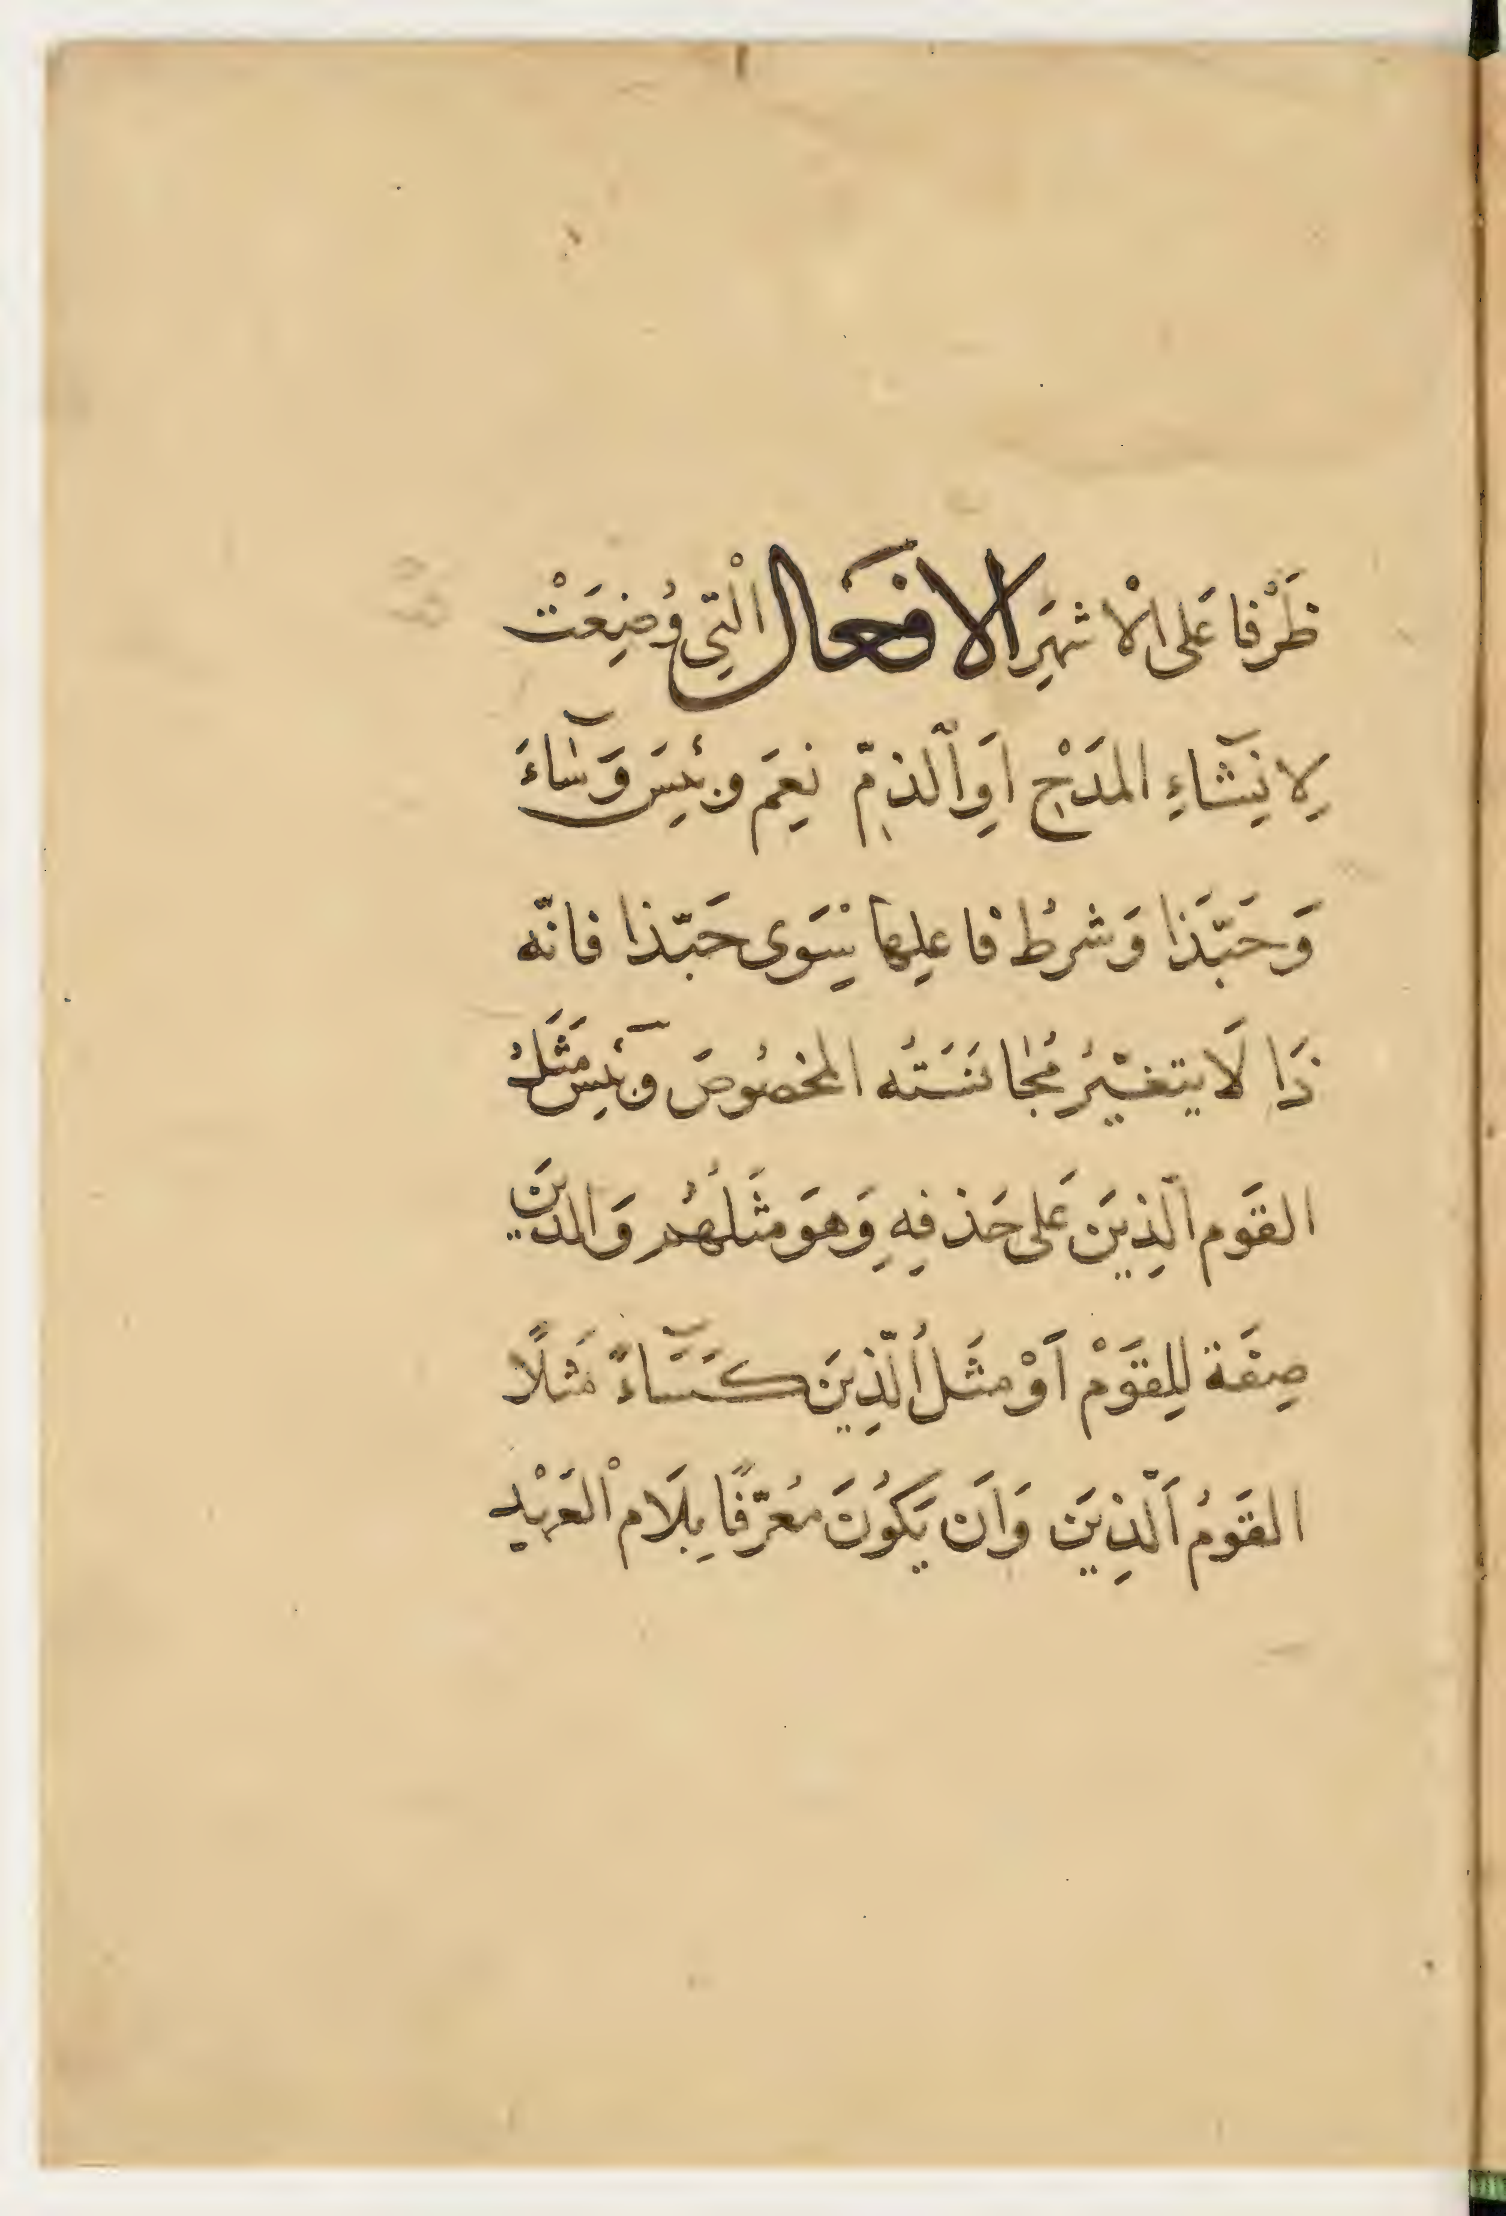 ظَرْفا عَلى الْاشهَرِ الافعَال الْتِي وُضِعَتْ
لِانِشَاءِ المَدْحِ اَوِ اَلذمّ نِعَم وبِئسَ وَسَاءَ
وَحَبّذَا وَشرطُ فاعلِها سِوَى حَبّذا فانّه
ذَا لَا يتغيْرُ مُجَانَسَتُه المخصُوصَ وَبِئسَ مَثَلُ
القَوم الّذِينَ عَلى حَذفِهِ وَهوَ مثَلُهُم وَالذينَ
صِفَة لِلِقَوْم اَوْ مثَلُ الّذِينَ كَسَاءً مَثَلًا
القَومُ اَلّذِينَ وَاَن يَكوُنَ مُعَرّفًا بِلَام الْعَهْدِ